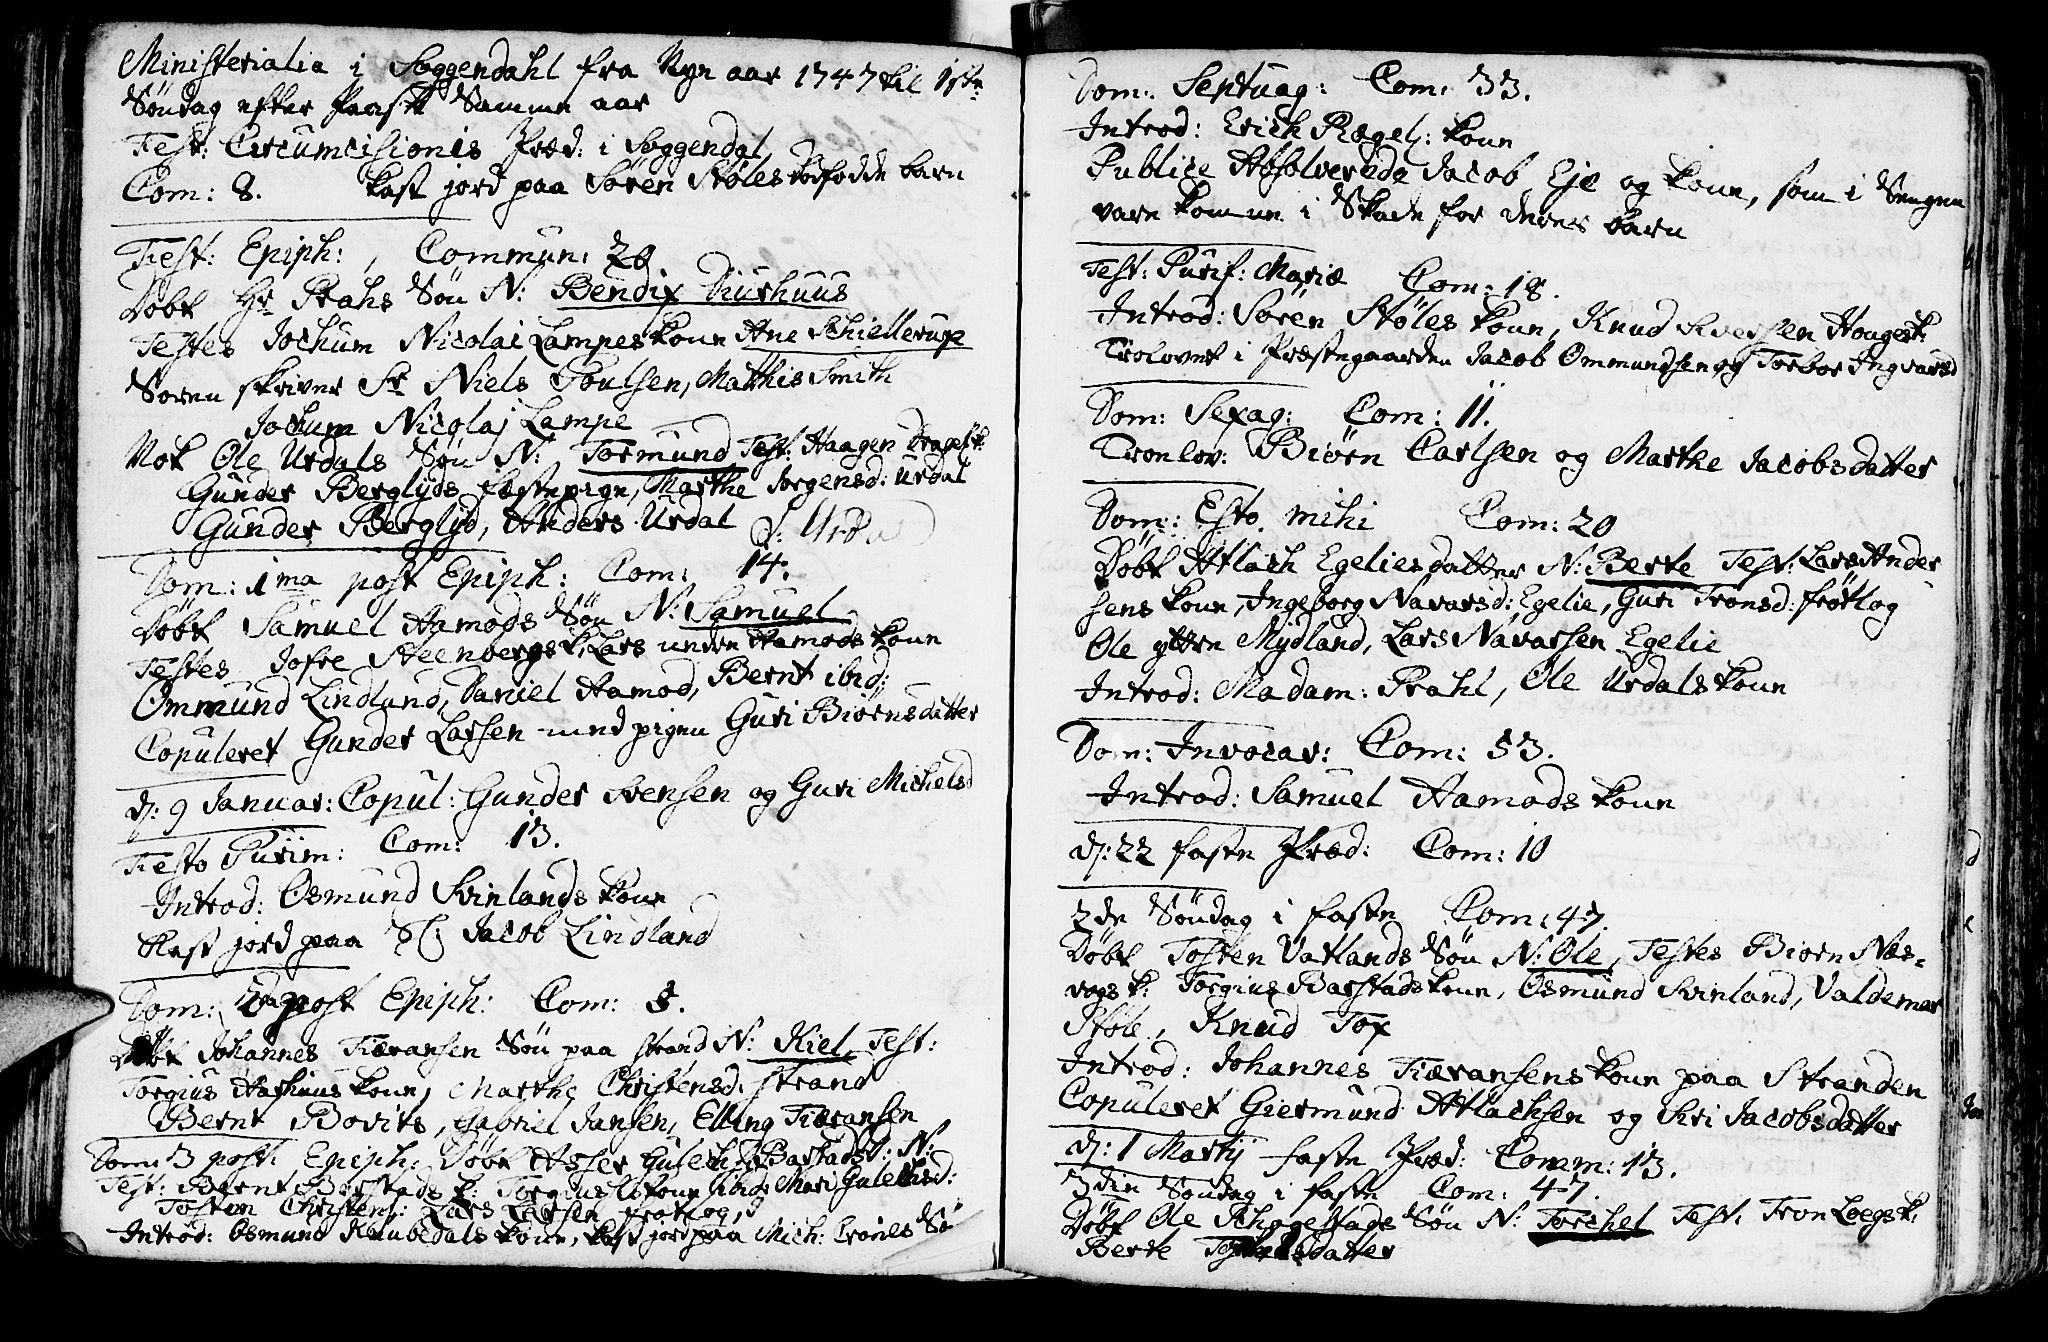 Ministerialia i Soggendahl fra Nyn aar 1747 til 1ste
Søndag efter Paaske Samme aar
Fest: Circumcisionis Præd: i Soggendal
Com: 8. kast jord paa Søren Støles dødfødde barn
Fest: Epiph:, Commun: 26
Døbt Hr Prahs Søn N: Bendix Diurhuus
Testes Jochum Nicolai Lampes kone Ane Schiellerup
Soren skriver Sr Niels Poulsen, Mathis Smith
Jochum Nicolaj Lampe
Nok Ole Urdals Søn N: Tormund Test: Haagen Drages k:
Gunder Berglyds fæstepige, Marthe Jorgensd: Urdal
Gunder Berglyd, Anders Urdal
Dom: 1ma post Epiph: Com: 14.
Døbt Samuel Aamods Søn N: Samuel
Testes Jofre Steenbergs k, Lars neden Aamods kone
Ommund Lindland, Daniel Aamod, Bernt ibid:
Copuleret Gunder Larsen med pigen Guri Biørnsdatter
d: 9 Januar: Copul: Gunder Svensen og Guri Michelsd
Festo Purim: Com: 13.
Introd: Osmund Svinlands kone
Kast jord paa Sl: Jacob Lindland
Dom: 2da post Epiph: Com: 8.
Døbt Johannes Fiæransen Søn paa strand N: Kiel Test:
Torgius Aarhuus kone, Marthe Christensd: Strand
Bernt Bovits, Gabriel Jansen, Elling Fiæransen
Dom: 3 post Epiph: Døbt Asser Gulech Barstads N:
Test: Bernt Barstads k: Torgius kone ibid: Mari Gulechsd:
Tosten Christens: Lars Larsen frøtlog,
Introd: Osmund Raubedals kone, kast jord paa Mich: Trones Sø
Dom: Septuag: Com: 33.
Introd: Erich Rægel: kone
Publice Absolverede Jacob Eje og kone, som i Sengen
vare komne i Skade for deres barn
Fest: Purif: Mariæ Com: 18.
Introd: Søren Støles kone, Knud Sversen Houges k:
Trolovet i Præstegaarden Jacob Ommundsen og Torbor Ingvarsd
Dom: Sexag: Com: 11.
Troelov: Biørn Carlsen og Marthe Jacobsdatter
Dom: Esto mihi Com: 20
Døbt Atlach Egelies datter N: Berte Test: Lars Ander
sens kone, Ingeborg Navarsd: Egelie, Guri Tronsd: frøtlog
Ole ytre Mydland, Lars Navarsen Egelie
Introd: Madam: Prahl, Ole Urdals kone
Dom: Invocav: Com: 53.
Introd: Samuel Aamods kone
d: 22 faste Præd: Com: 10
2de Søndag i faste Com: 47.
Døbt Tosten Vatlands Søn N: Ole, Testes Biørn Næs-
vogs k: Torgius Barstads kone, Osmund Svinland, Valdemar
Støle, Knud Tox
Introd: Johannes Fiæransens kone paa Stranden
Copuleret Giermund Atlachsen og Siri Jacobsdatter
d: 1 Martij faste Præd: Comm: 13.
3die Søndag i faste Com: 47.
Døbt Ole Schogestads Søn N: Torchel Test: Tron Loegs k:
Berte datter